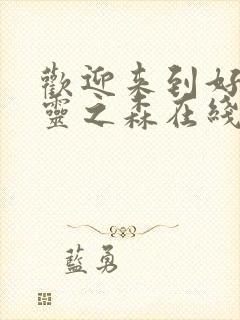 歡迎来到好
靈之森在綫
藍勇